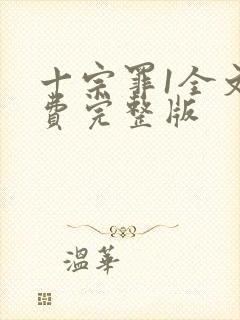 十宗罪1全文
费完整版
温华